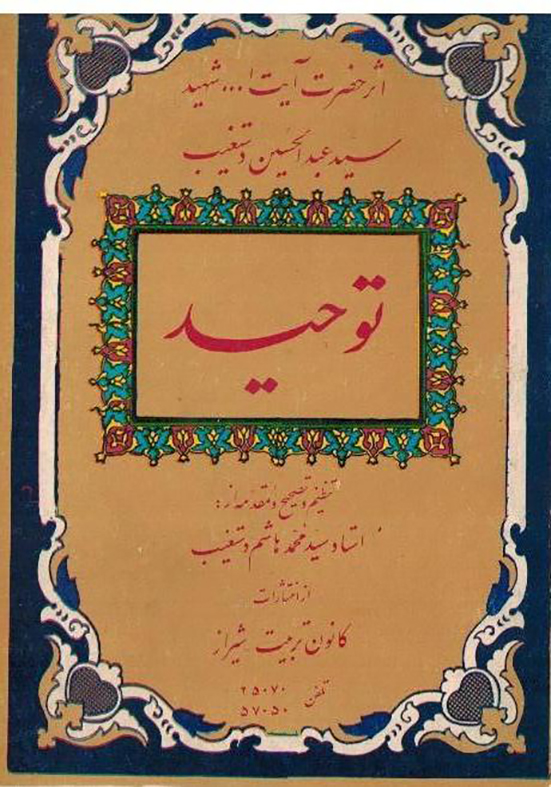 اثر حضرت آیت ا... شهید
سید عبدالحسین دستغیب
توحید
تنظیم و تصحیح و مقدمه از:
استاد سید محمد هاشم دستغیب
از انتشارات
کانون تربیت شیراز
تلفن ۲۵۰۷۰
۵۷۰۵۰